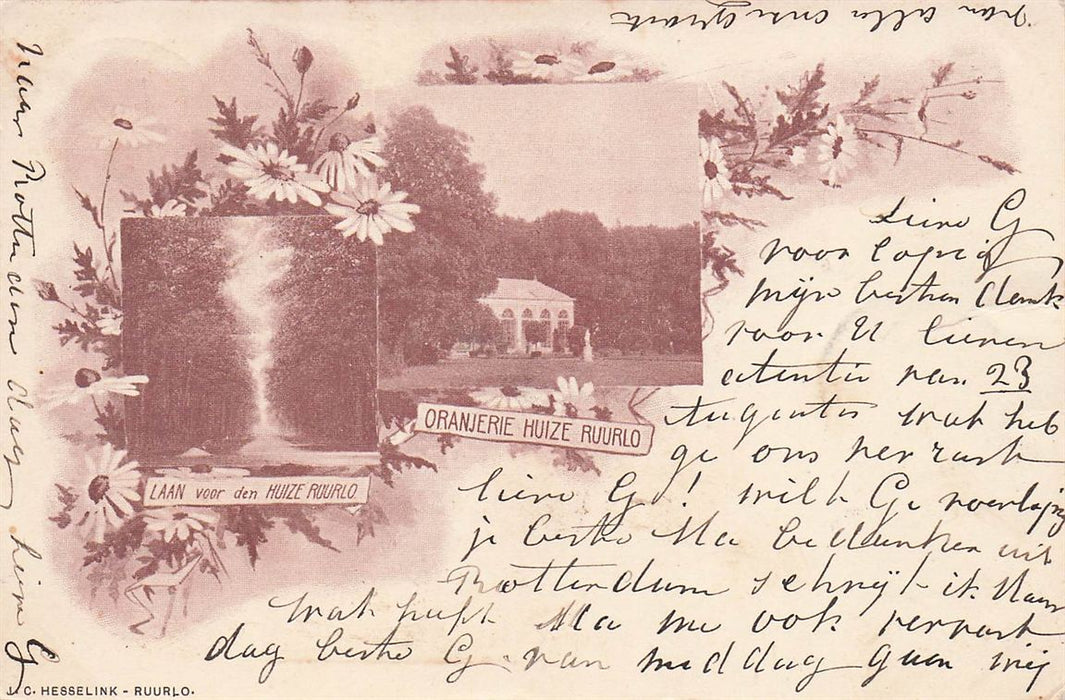 Lieve G
voor
mijn besten dank
voor U lieven
attentie van 23
Augustus wat heb
ge ons verrast
lieve G! wilt Ge voorlopig
je beste Ma bedanken uit
Rotterdam schrijf ik Haar
Wat heeft Ma me ook verrast
dag beste G. van middag gaan wij
naar Rotterdam dag lieve G
van allen onze groeten
ORANJERIE HUIZE RUURLO
LAAN voor den HUIZE RUURLO
J. C. HESSELINK - RUURLO.